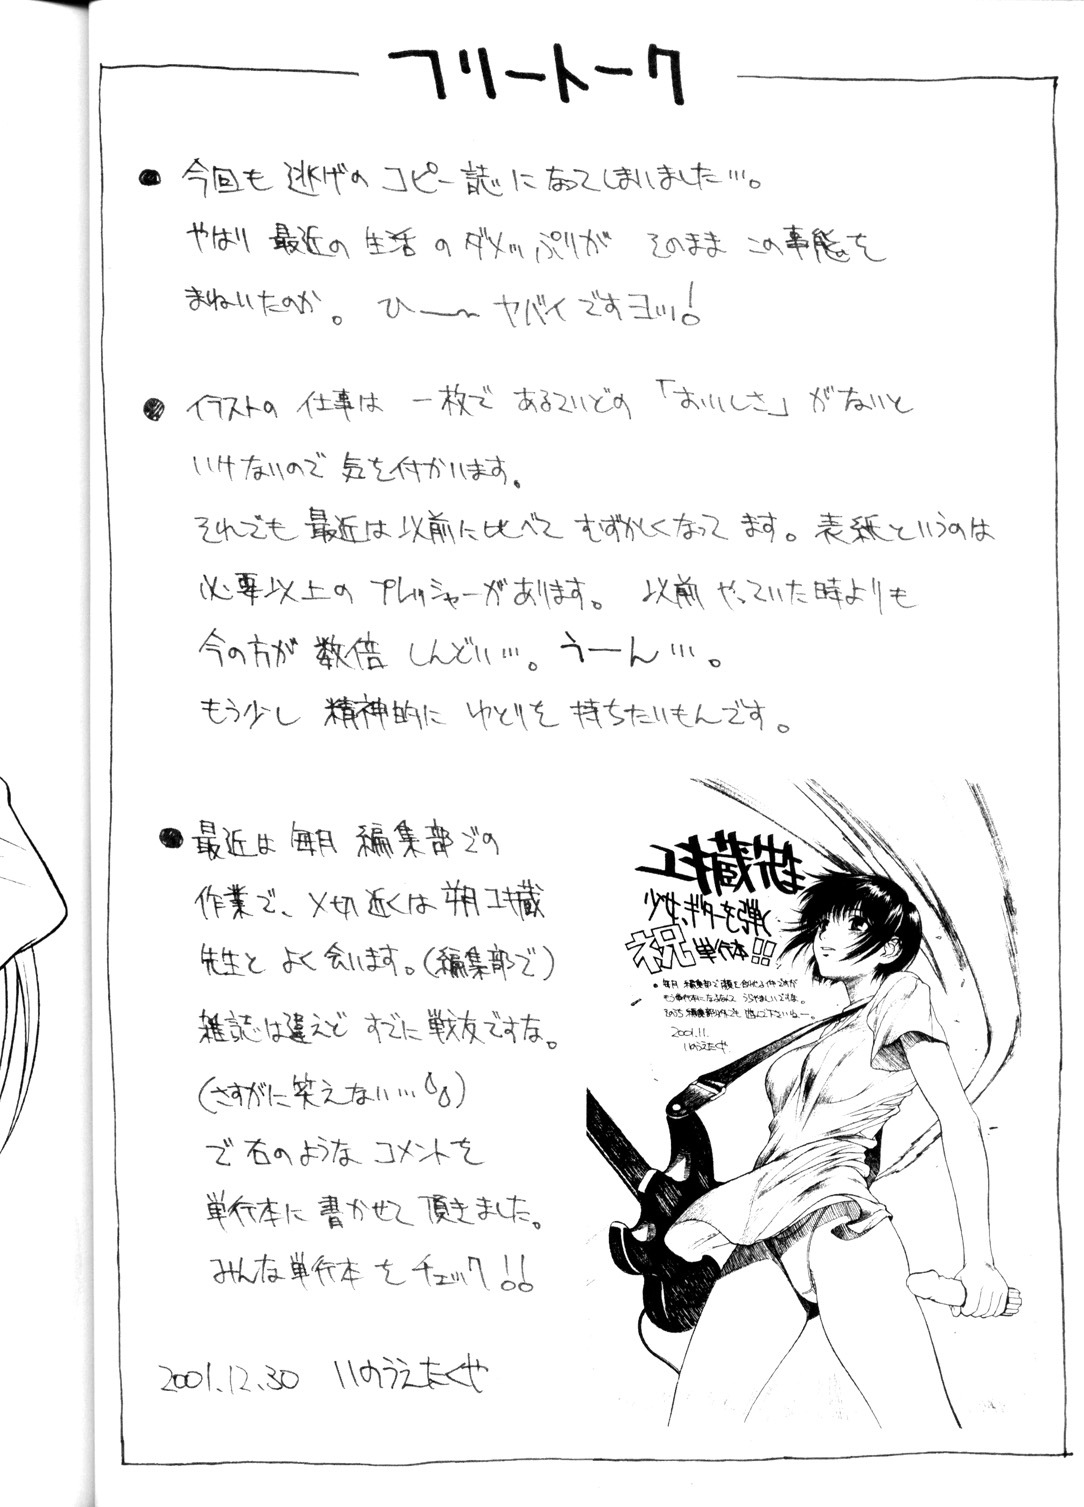 フリートーク
● 今回も 逃げの コピー誌になってしまいました…。
やはり 最近の 生活 の ダメッぷりが そのまま この事態を
まねいたのか。 ひー〜 ヤバイですヨッ!
● イラストの 仕事は 一枚で あるていどの 「おいしさ」がないと
いけないので 気を付かいます。
それでも 最近は 以前に比べて むずかしくなって ます。表紙というのは
必要以上の プレッシャーがあります。 以前 やっていた時よりも
今の方が 数倍 しんどい…。うーん…。
もう少し 精神的に ゆとりを 持ちたいもんです。
● 最近は 毎月 編集部での
作業で、〆切近くは 朔ユキ蔵
先生と よく会います。(編集部で)
雑誌は違えど すでに 戦友ですな。
(さすがに笑えない…)
で 右のような コメントを
単行本に 書かせて 頂きました。
みんな単行本 を チェック!!
2001.12.30 いのうえたくや
ユキ蔵先生
少女、ギターを弾く
祝 単行本!!
● 毎月 編集部で顔を合わせる仲ですが
もう単行本になるなんて うらやましいですな。
2001.11.
いのうえたくや